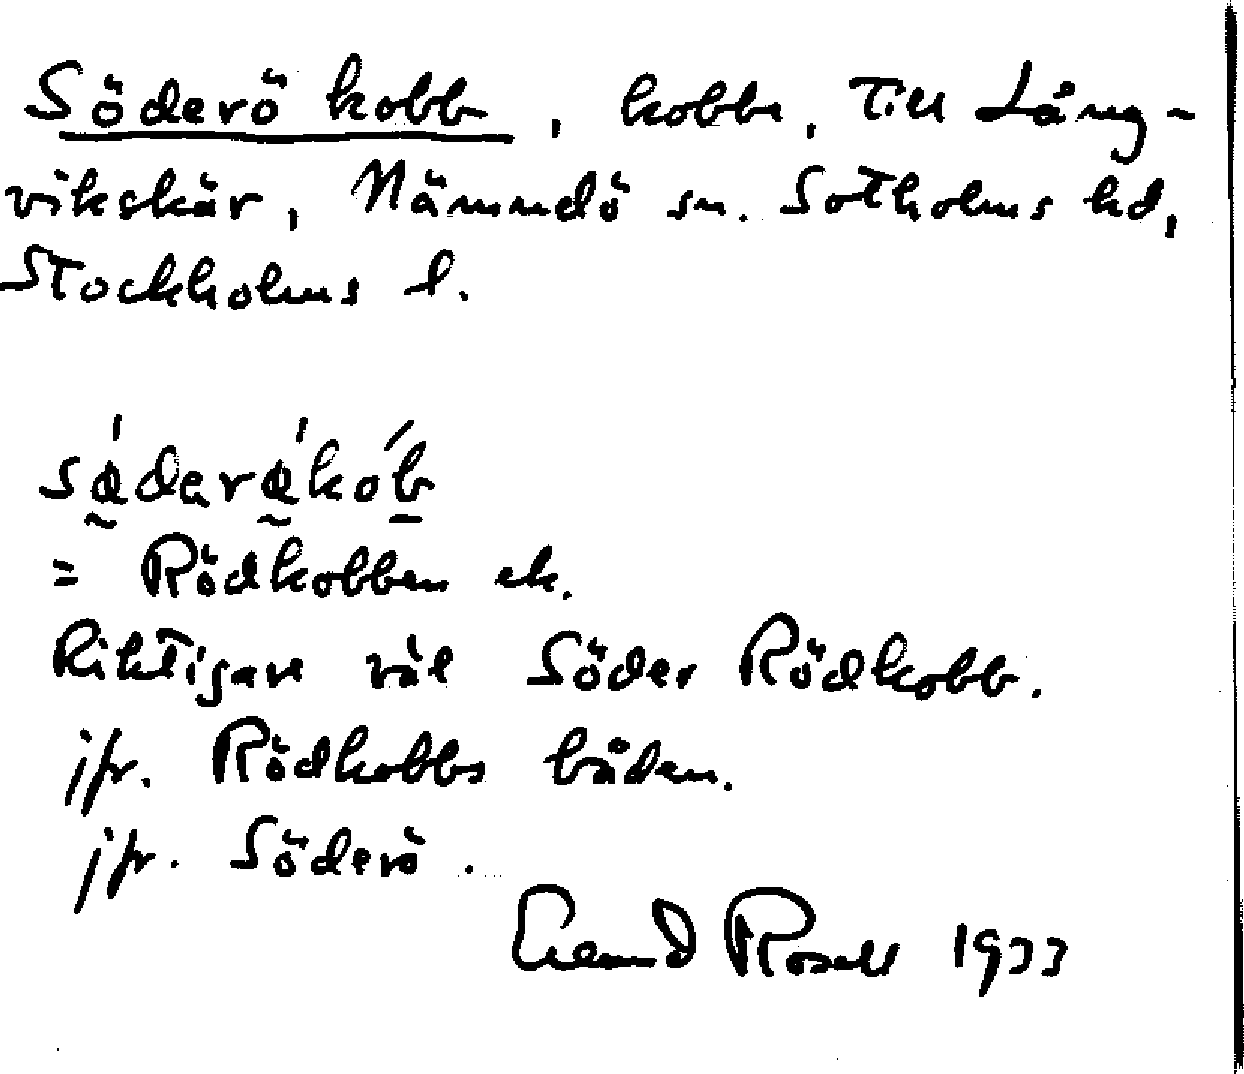 Söderö kobb, kobbe, till Lång-
vikskär, Nämndö sn. Sotholms hd,
Stockholms l.
= Rödkobben ek.
Riktigare väl Söder Rödkobb.
jfr. Rödkobbs båden.
jfr. Söderö.
Rosell 1933